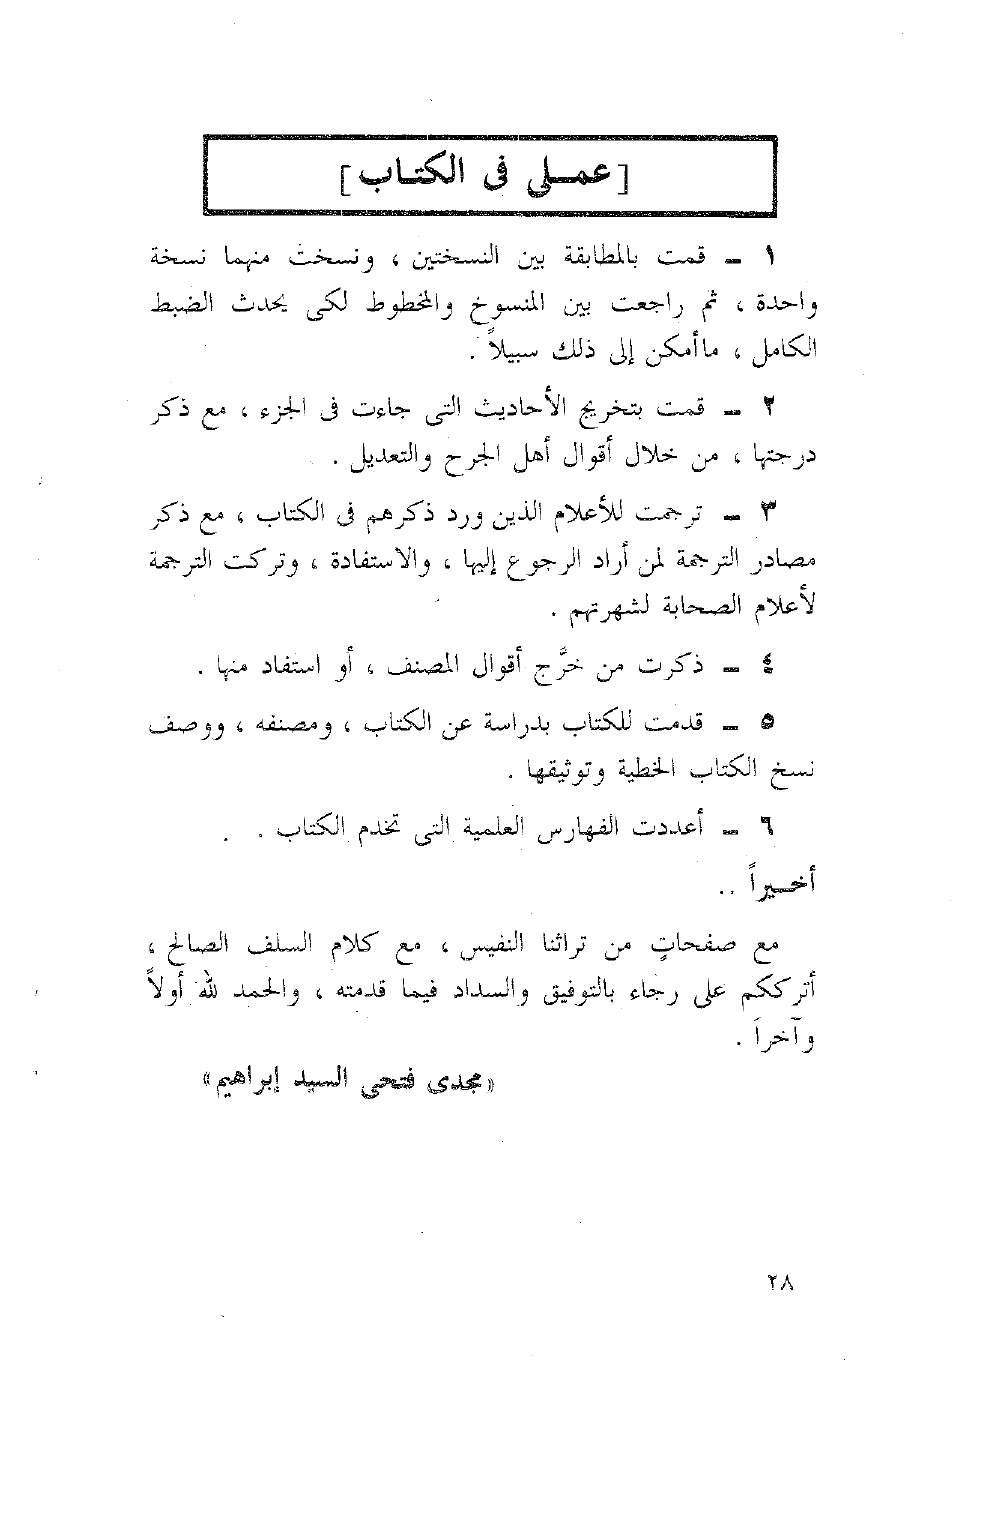 [عمـلى فى الكتـاب]
١ ــ قمت بالمطابقة بين النسختين ، ونسخت منهما نسخة
واحدة ، ثم راجعت بين المنسوخ والمخطوط لكى يحدث الضبط
الكامل ، ماأمكن إلى ذلك سبيلاً .
٢ ــ قمت بتخريج الأحاديث التى جاءت فى الجزء ، مع ذكر
درجتها ، من خلال أقوال أهل الجرح والتعديل .
٣ ــ ترجمت للأعلام الذين ورد ذكرهم فى الكتاب ، مع ذكر
مصادر الترجمة لمن أراد الرجوع إليها ، والاستفادة ، وتركت الترجمة
لأعلام الصحابة لشهرتهم .
٤ ــ ذكرت من خرَّج أقوال المصنف ، أو استفاد منها .
٥ ــ قدمت للكتاب بدراسة عن الكتاب ، ومصنفه ، ووصف
نسخ الكتاب الخطية وتوثيقها .
٦ ــ أعددت الفهارس العلمية التى تخدم الكتاب .
أخـيراً ..
مع صفحاتٍ من تراثنا النفيس ، مع كلام السلف الصالح ،
أترككم على رجاء بالتوفيق والسداد فيما قدمته ، والحمد لله أولاً
وآخراً .
«مجدى فتحى السيد إبراهيم»
٢٨